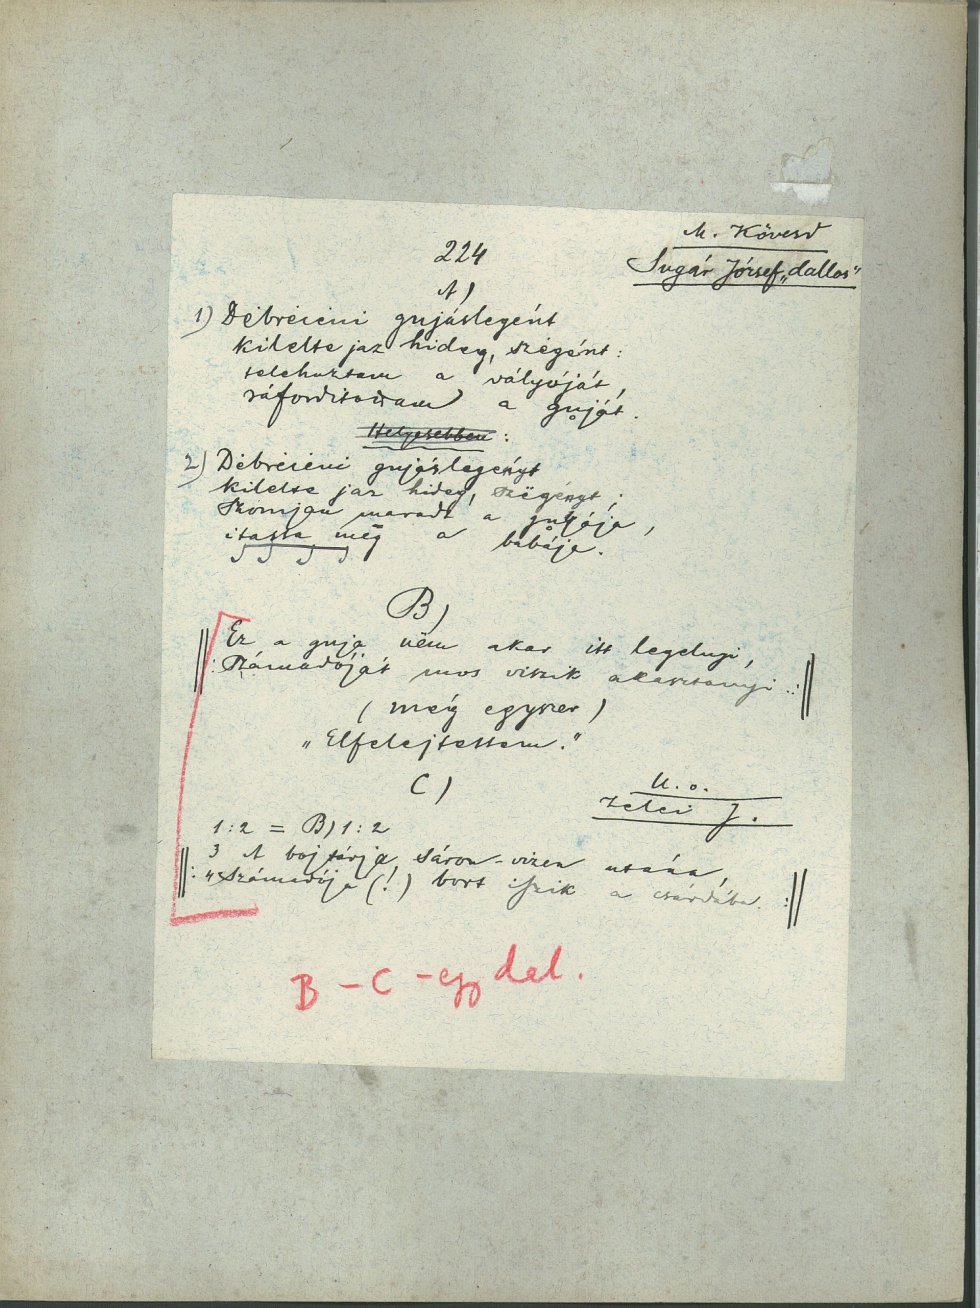 M. Kövesd
224
Sugár József „dallos"
A)
1) Dëbrëcëni gujáslegént
kilelte jaz hideg, szëgént:
telehuztam a vályóját,
ráfordítottam a guját.
Helyesebben:
2) Dëbrëcëni gujáslegényt
kilelte jaz hideg, szëgényt;
Szomjan maradt a gulyája,
itassa mëg a babája.
B)
Ez a guja nëm akar itt legelnyi,
|: Számadóját mos viszik akasztanyi :|
(még egyszer)
„Elfelejtettem."
C)
U. o.
Zelei J.
1:2 = B) 1:2
3 A bojtárja sáron-vizen utána,
|: 4 Számadója (!) bort iszik a csárdába. :|
B - C - egy dal.